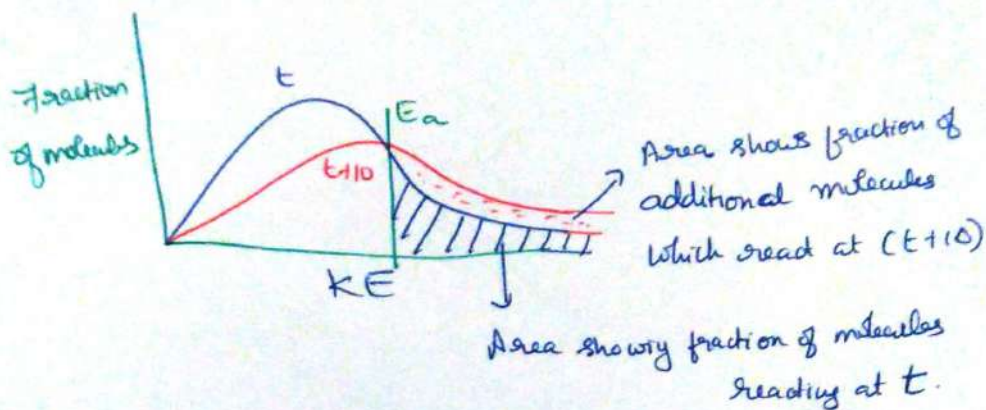 Fraction
of molecules
t
Ea
t+10
KE
Area shows fraction of
additional molecules
which read at (t+10)
Area showiy fraction of molecules
reading at t.